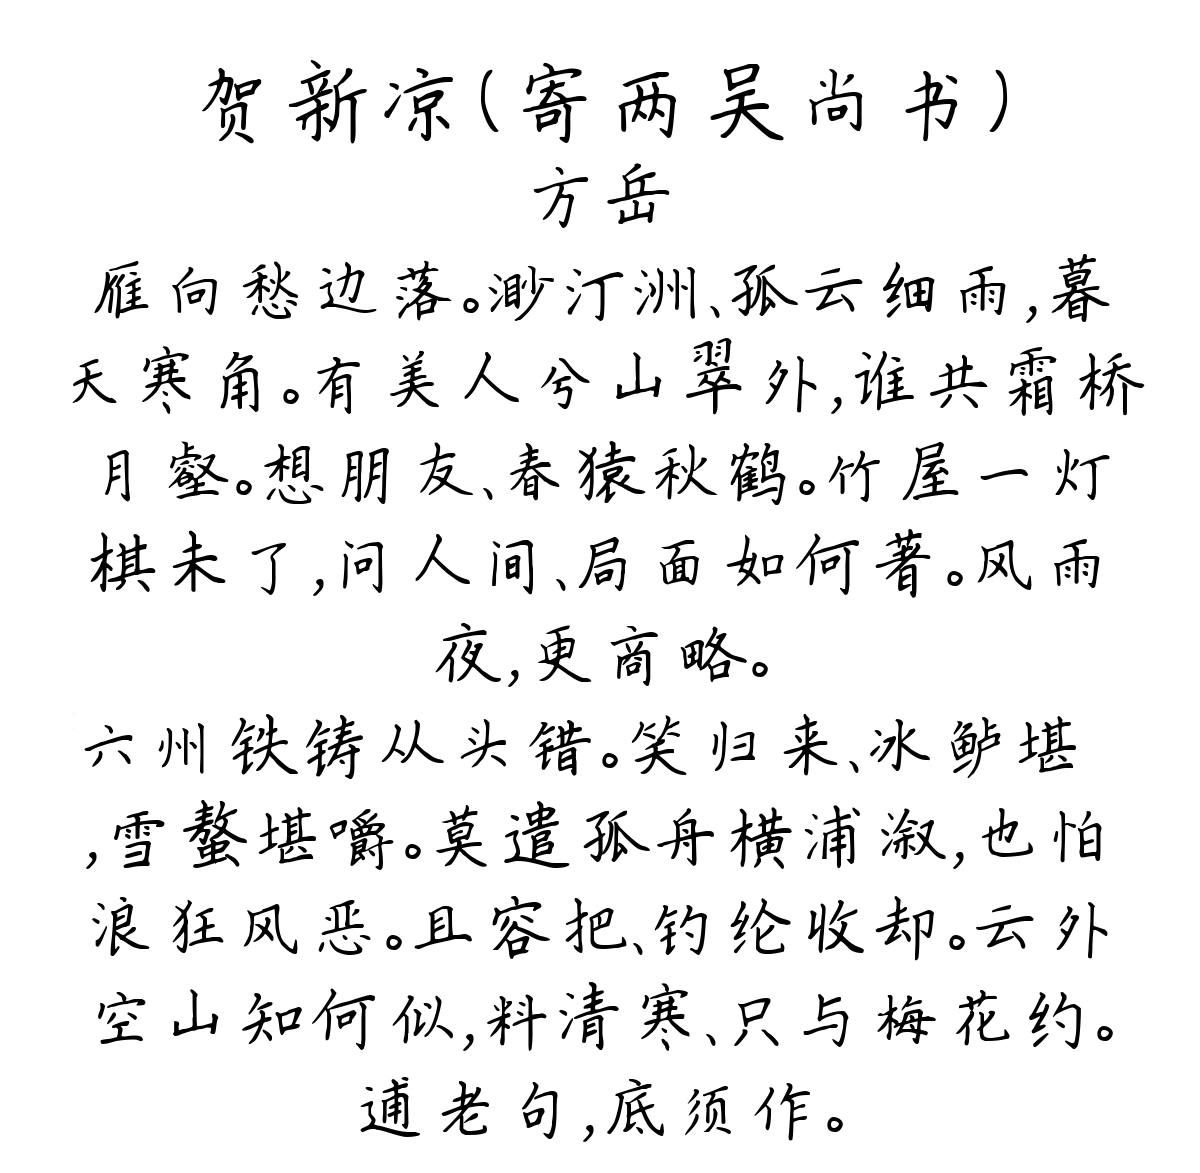 贺新凉(寄两吴尚书)
方岳
雁向愁边落。渺汀洲、孤云细雨,暮
天寒角。有美人兮山翠外,谁共霜桥
月壑。想朋友、春猿秋鹤。竹屋一灯
棋未了,问人间、局面如何著。风雨
夜,更商略。
六州铁铸从头错。笑归来、冰鲈堪
,雪螯堪嚼。莫遣孤舟横浦溆,也怕
浪狂风恶。且容把、钓纶收却。云外
空山知何似,料清寒、只与梅花约。
逋老句,底须作。